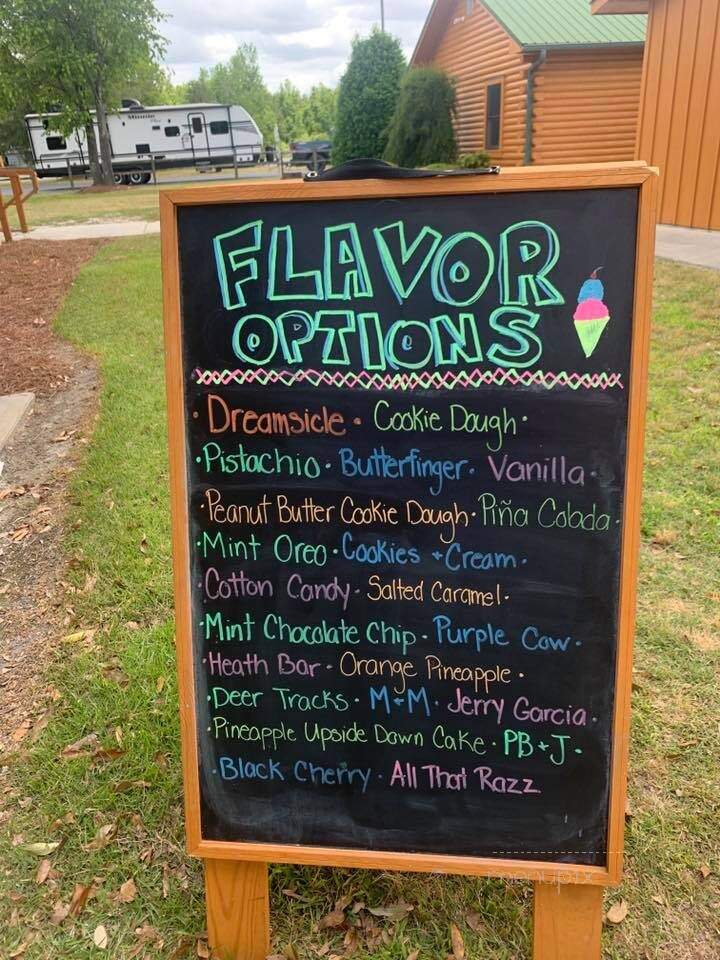 Minnie
FLAVOR
OPTIONS
• Dreamsicle • Cookie Dough •
• Pistachio • Butterfinger • Vanilla •
• Peanut Butter Cookie Dough • Piña Colada •
• Mint Oreo • Cookies + Cream •
• Cotton Candy • Salted Caramel •
• Mint Chocolate Chip • Purple Cow •
• Heath Bar • Orange Pineapple •
• Deer Tracks • M+M • Jerry Garcia •
• Pineapple Upside Down Cake • PB+J •
• Black Cherry • All That Razz
menupix